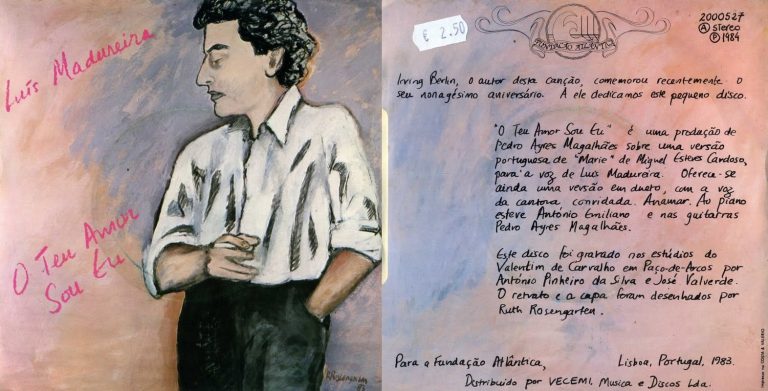 Luís Madureira
O Teu Amor
Sou Eu
€ 2.50
FUNDAÇÃO ATLÂNTICA
2000527
A stereo
P 1984
Irving Berlin, o autor desta canção, comemorou recentemente o
seu nonagésimo aniversário. A ele dedicamos este pequeno disco.
"O Teu Amor Sou Eu" é uma produção de
Pedro Ayres Magalhães sobre uma versão
portuguesa de "Marie" de Miguel Esteves Cardoso,
para a voz de Luís Madureira. Oferece-se
ainda uma versão em dueto, com a voz
da cantora convidada. Anamar. Ao piano
esteve António Emiliano e nas guitarras
Pedro Ayres Magalhães.
Este disco foi gravado nos estúdios do
Valentim de Carvalho em Paço-de-Arcos por
António Pinheiro da Silva e José Valverde.
O retrato e a capa foram desenhados por
Ruth Rosengarten.
Para a Fundação Atlântica, Lisboa, Portugal, 1983.
Distribuído por VECEMI, Musica e Discos Lda.